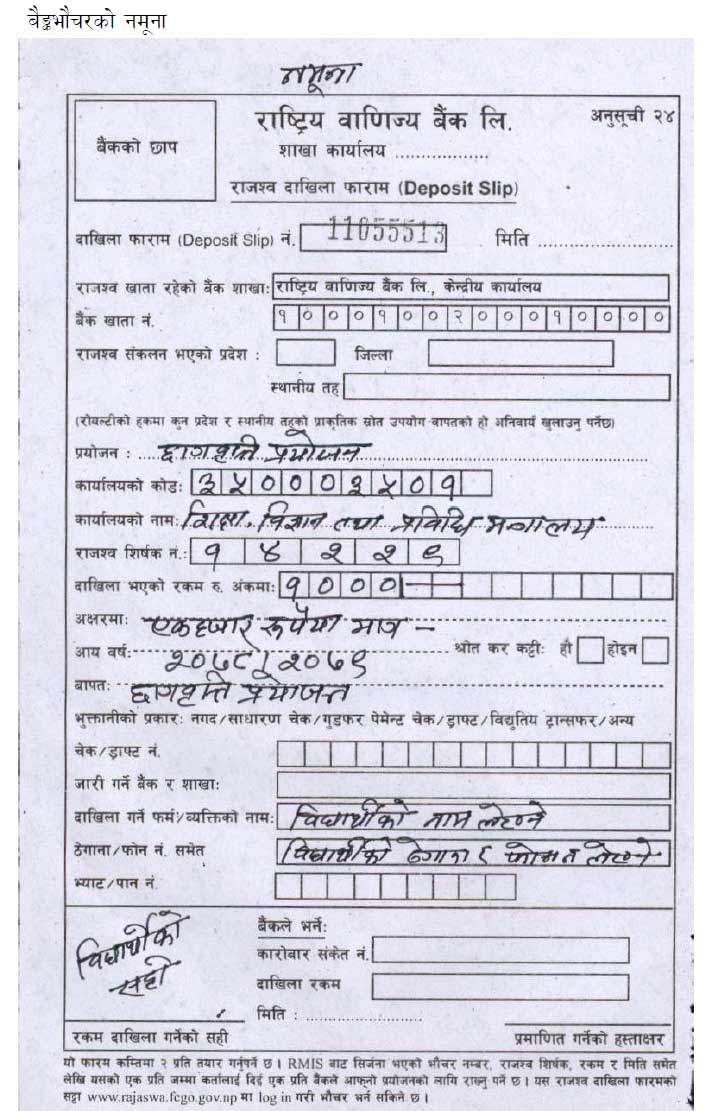 बैङ्कभौचरको नमूना
नमूना
बैंकको छाप
राष्ट्रिय वाणिज्य बैंक लि.
अनुसूची २४
शाखा कार्यालय ....................
राजश्व दाखिला फाराम (Deposit Slip)
दाखिला फाराम (Deposit Slip) नं. 11055513 मिति ....................
राजश्व खाता रहेको बैंक शाखाः राष्ट्रिय वाणिज्य बैंक लि., केन्द्रीय कार्यालय
बैंक खाता नं. १०००१००२०००१००००
राजश्व संकलन भएको प्रदेश : जिल्ला
स्थानीय तह
(रोयल्टीको हकमा कुन प्रदेश र स्थानीय तहको प्राकृतिक स्रोत उपयोग बापतको हो अनिवार्य खुलाउनु पर्नेछ)
प्रयोजन : छात्रवृत्ति प्रयोजन
कार्यालयको कोडः ३५०००३५०१
कार्यालयको नामः शिक्षा, विज्ञान तथा प्रविधि मन्त्रालय
राजश्व शिर्षक नं.: १४२२९
दाखिला भएको रकम रु. अंकमाः १०००।—
अक्षरमाः एकहजार रूपैया मात्र –
आय वर्षः २०७८।२०७९ श्रोत कर कट्टीः हो होइन
बापतः छात्रवृत्ति प्रयोजन
भुक्तानीको प्रकारः नगद/साधारण चेक/गुडफर पेमेन्ट चेक/ड्राफ्ट/विद्युतिय ट्रान्सफर/अन्य
चेक/ड्राफ्ट नं.
जारी गर्ने बैंक र शाखाः
दाखिला गर्ने फर्म/व्यक्तिको नामः विद्यार्थीको नाम लेख्ने
ठेगाना/फोन नं. समेत विद्यार्थीको ठेगाना र फोन नं लेख्ने
भ्याट/पान नं.
विद्यार्थीको
सही
बैंकले भर्नेः
कारोवार संकेत नं.
दाखिला रकम
मिति : ....................
रकम दाखिला गर्नेको सही
प्रमाणित गर्नेको हस्ताक्षर
यो फारम कम्तिमा २ प्रति तयार गर्नुपर्ने छ । RMIS बाट सिर्जना भएको भौचर नम्बर, राजश्व शिर्षक, रकम र मिति समेत
लेखि यसको एक प्रति जम्मा कर्तालाई दिई एक प्रति बैंकले आफ्नो प्रयोजनको लागि राख्नु पर्ने छ । यस राजश्व दाखिला फारमको
सट्टा www.rajaswa.fcgo.gov.np मा log in गरी भौचर भर्न सकिने छ ।